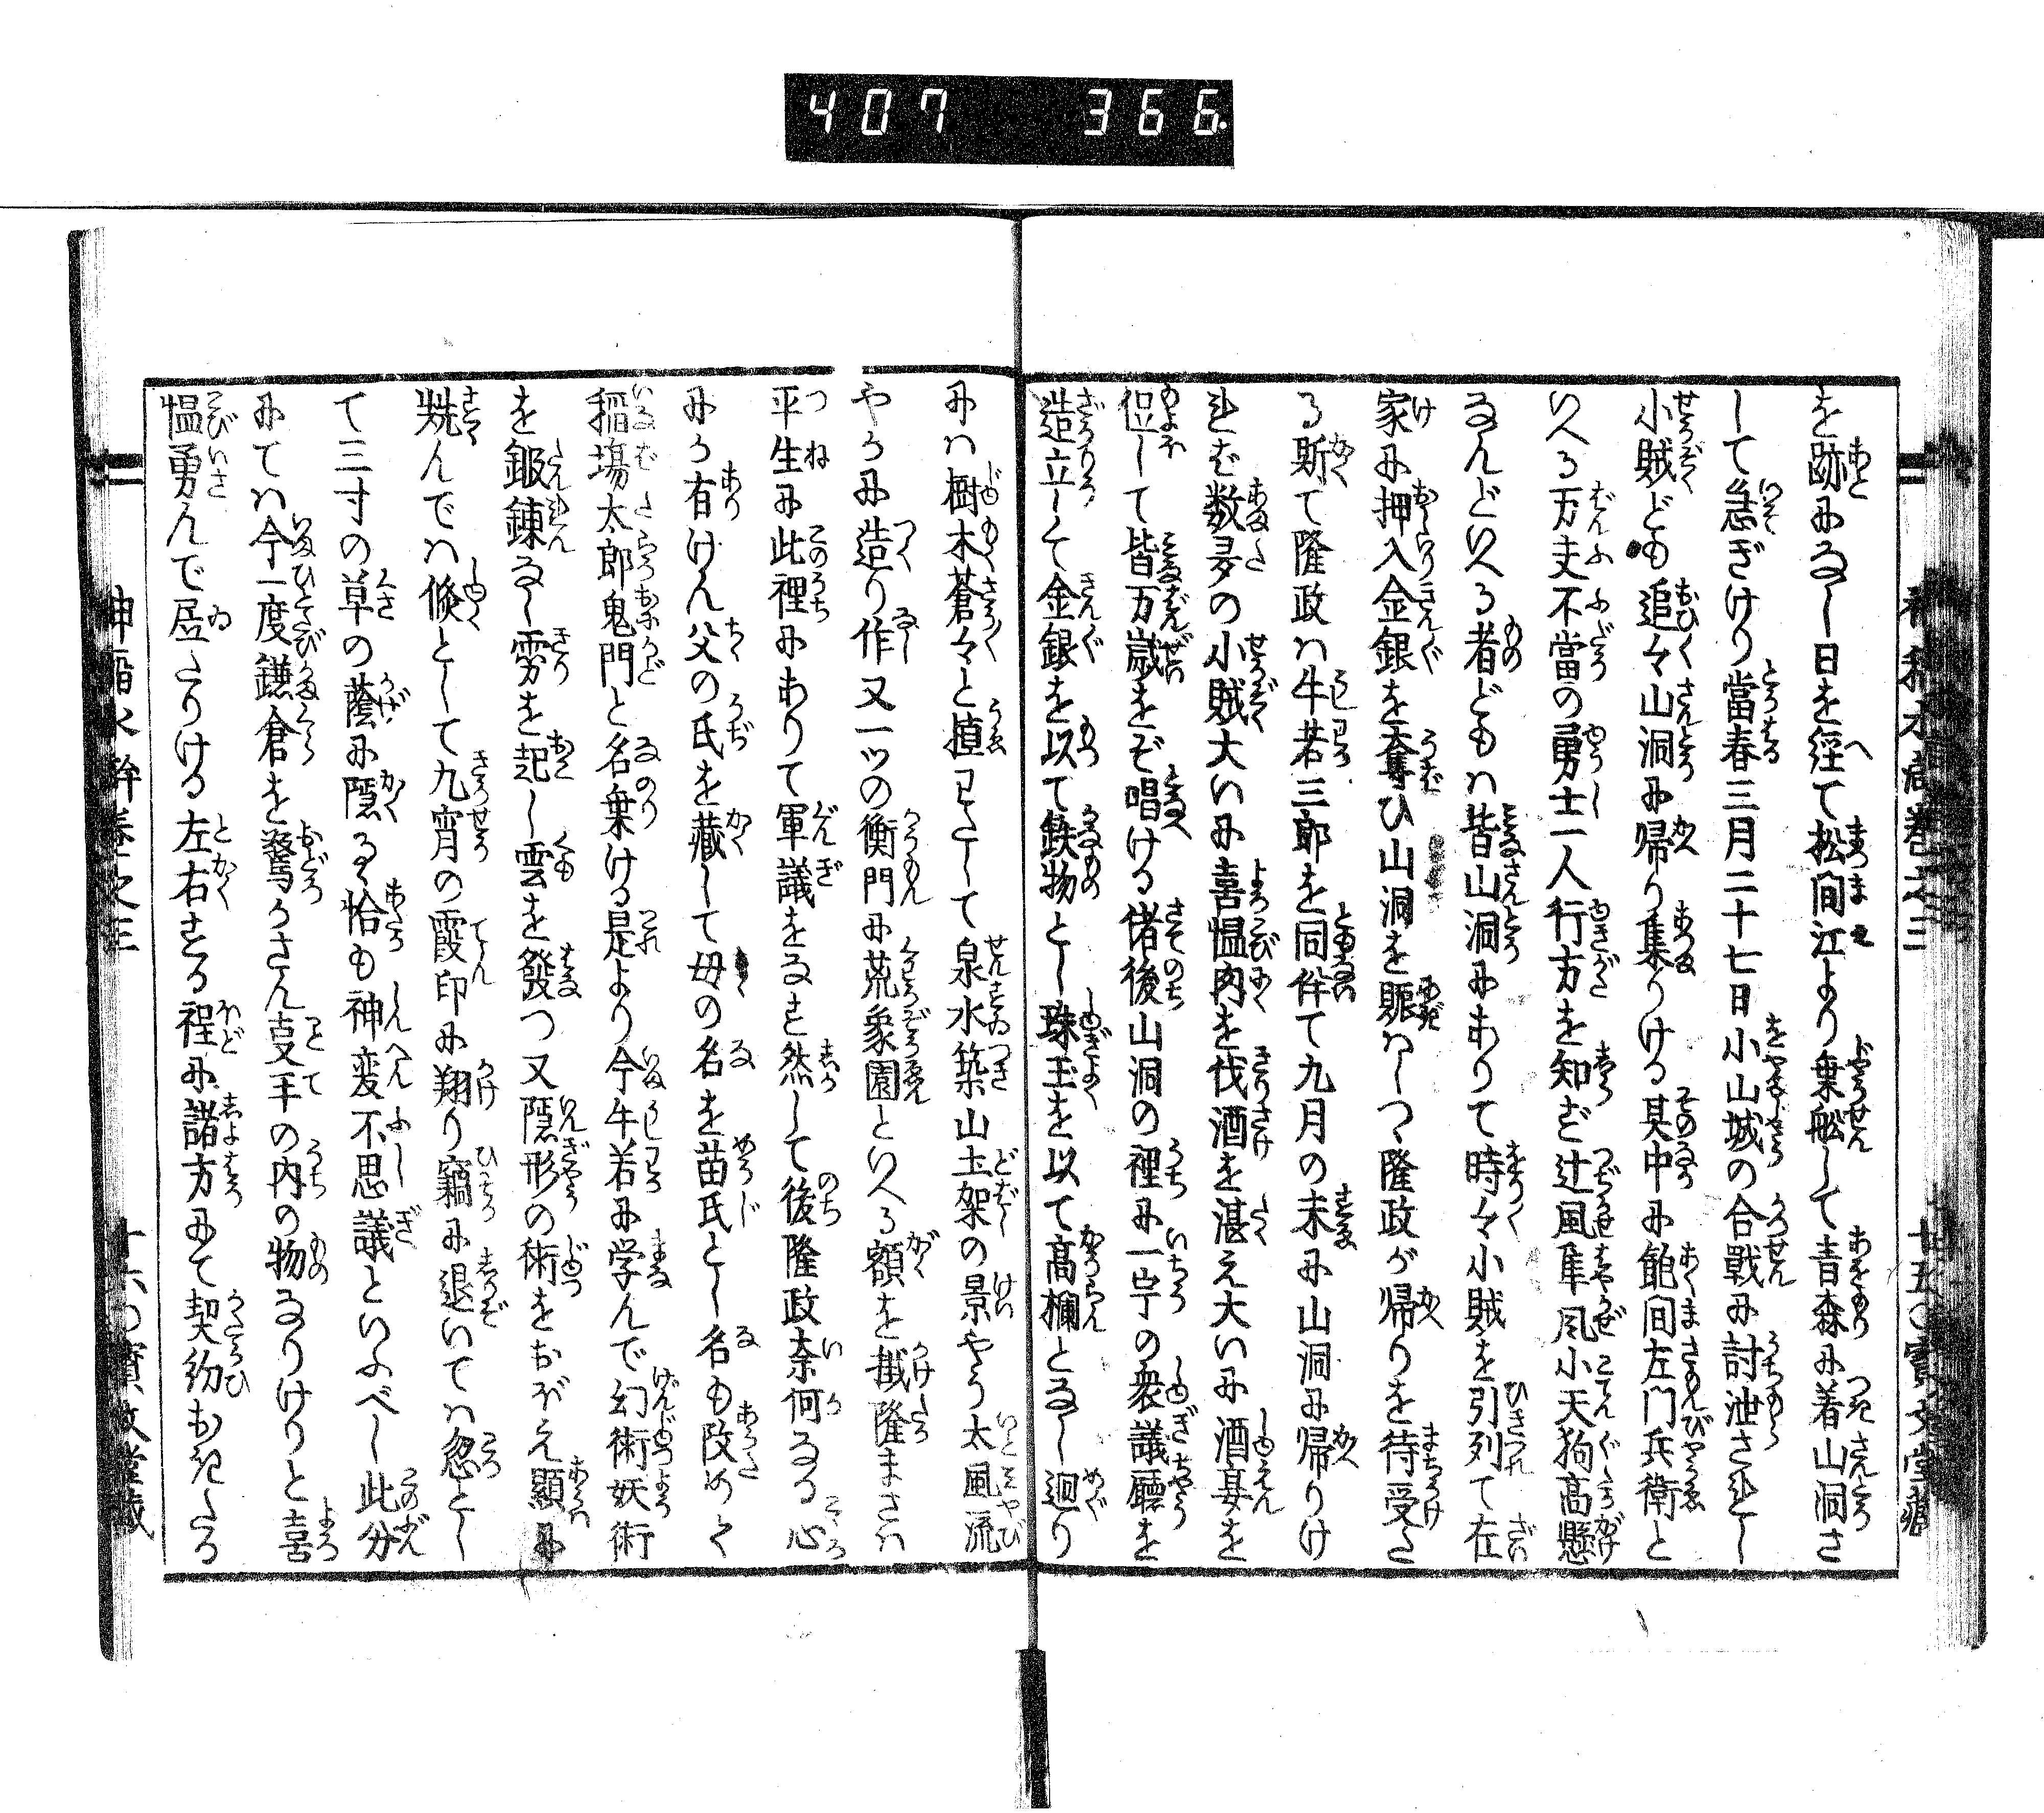 407 366.
を跡になし日を經て松間江より乗船して青森に着山洞さ
して急ぎけり當春三月二十七日小山城の合戰に討泄されし
小賊ども追々山洞に帰り集りける其中に飽間左门兵衛と
いへる万夫不當の勇士一人行方を知ず辻風隼風小天狗高懸
なんどいへる者どもは皆山洞にありて時々小賊を引列て在
家に押入金銀を奪ひ山洞を賑はしつゝ隆政が帰りを待受た
る斯て隆政は牛若三郎を同伴て九月の末に山洞に帰りけ
れば数多の小賊大いに喜愠肉を伐酒を湛え大いに酒宴を
促して皆万歳をぞ唱ける偖後山洞の裡に一宇の衆議廳を
造立して金銀を以て鉄物とし珠玉を以て高欄となし廻り
には樹木蒼々と植わたして泉水築山土架の景やう太風流
やかに造り作又一ツの衡門に荒象園といへる額を掛隆まさは
平生に此裡にありて軍議をなす然して後隆政奈何なる心
にか有けん父の氏を藏して母の名を苗氏とし名も改めて
稲塲太郎鬼門と名乗ける是より今牛若に学んで幻術妖術
を鍜錬なし雾を起し雲を發つ又隠形の術をおぼえ顯に
㷀んでは倏として九宵の霞印に翔り竊に退いては忽とし
て三寸の草の蔭に隠る恰も神变不思議といふべし此分
にては今一度鎌倉を驚かさん叓手の内の物なりけりと喜
愠勇んで居たりける左右する程に諸方にて契約おきたる
巻之三
十五〇寳文堂藏
神稲水滸巻之三
十六〇寳文堂藏